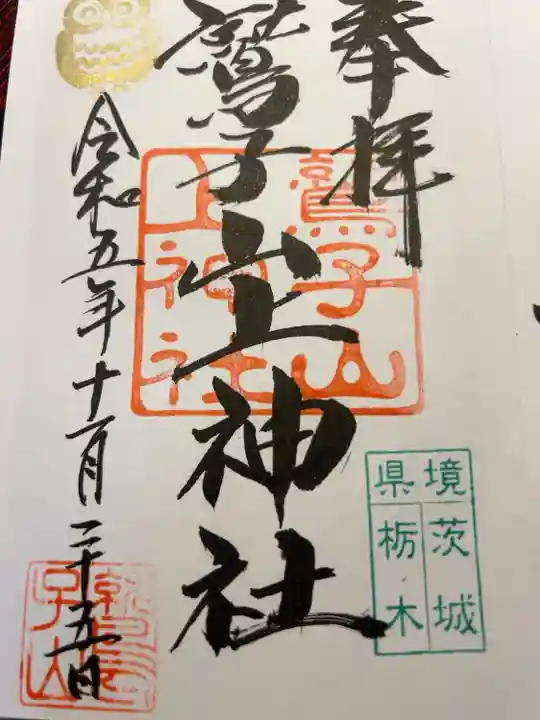 奉拝
鷲子山上神社
令和五年十一月二十五日
鷲子山
上神社
境 茨城
県 栃木